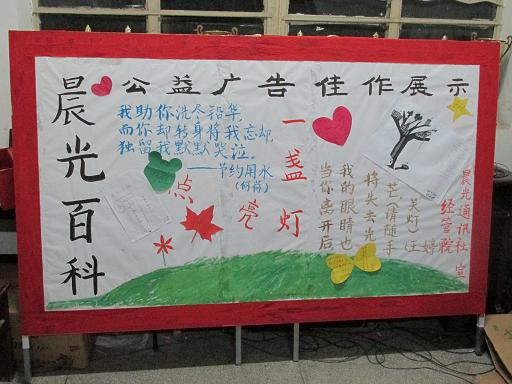 公益广告佳作展示
晨光百科
我助你洗尽铅华,
而你却转身将我忘却,
独留我默默哭泣。
——节约用水
(何荷)
点亮
一盏灯
当你离开后
我的眼睛也
将失去光
芒(请随手
关灯)(王婷
经营院
晨光通讯社宣